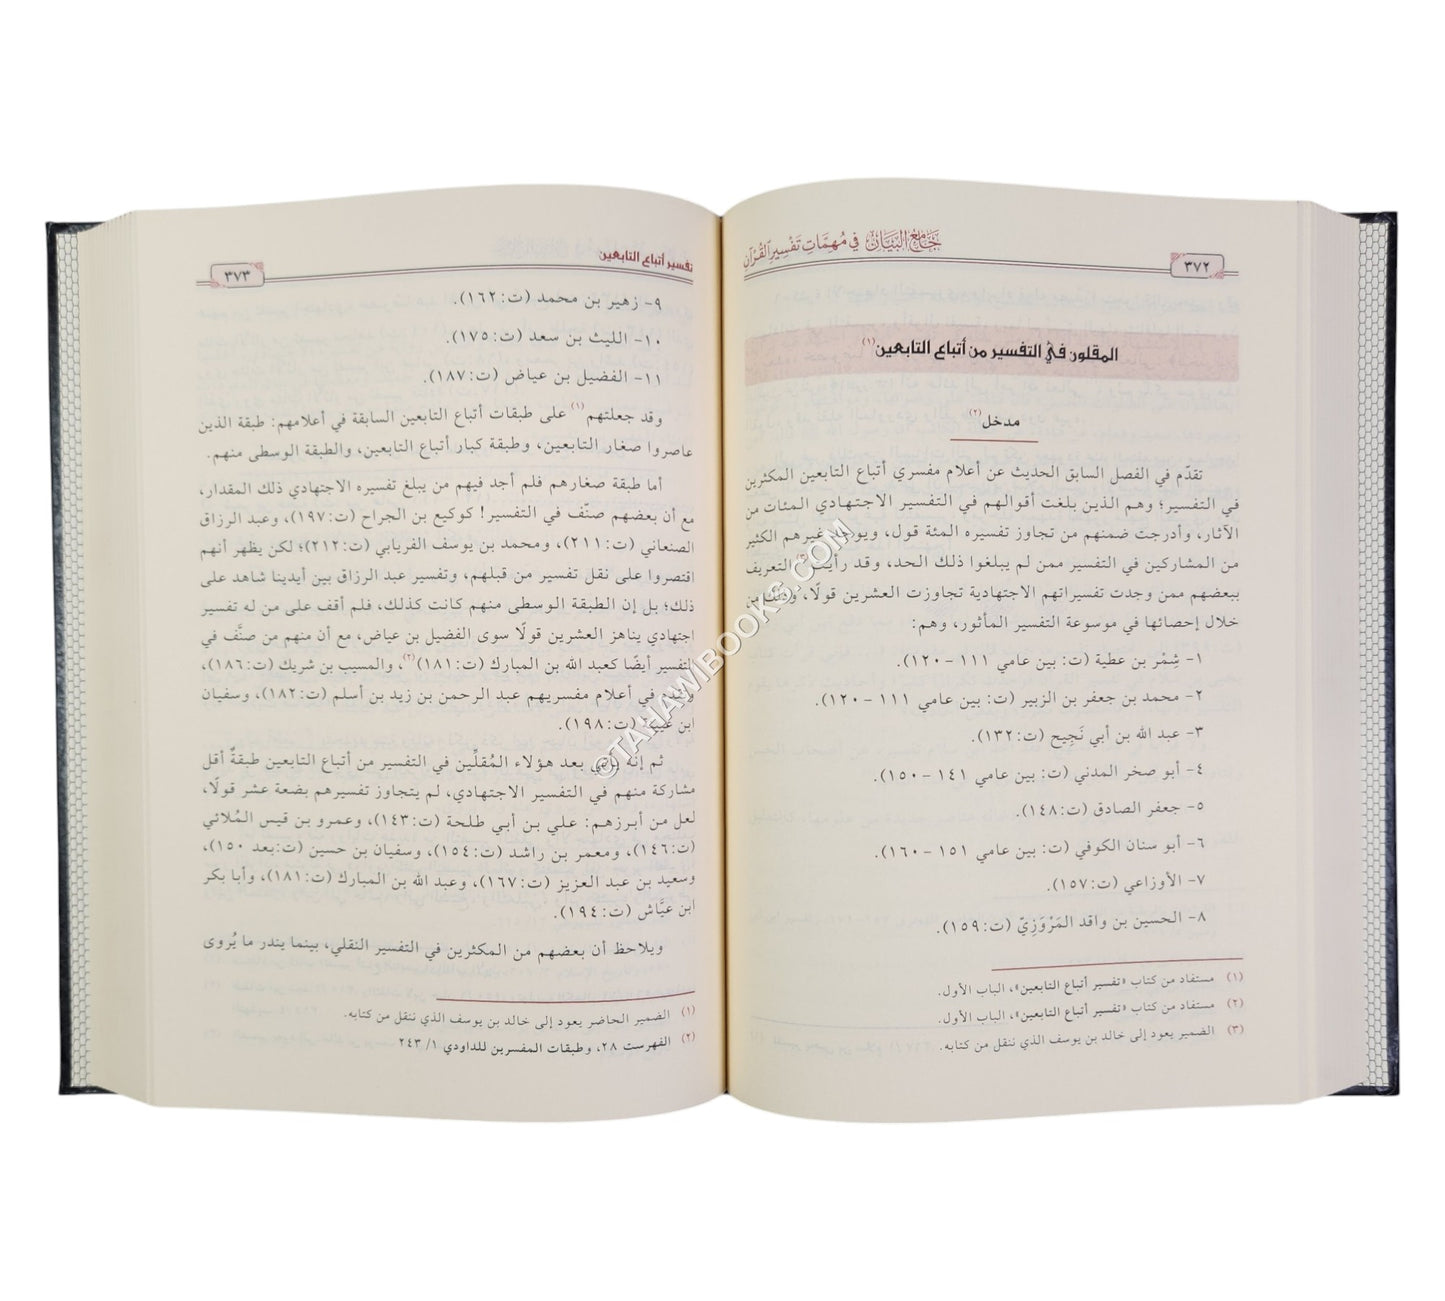 ٣٧٢
جَامِعُ البَيَانِ في مُهِمَّاتِ تَفْسِيرِ القُرْآنِ
المقلون في التفسير من أتباع التابعين(١)
مدخل(٢)
تقدّم في الفصل السابق الحديث عن أعلام مفسري أتباع التابعين المكثرين
في التفسير؛ وهم الذين بلغت أقوالهم في التفسير الاجتهادي المئات من
الآثار، وأدرجت ضمنهم من تجاوز تفسيره المئة قول، ويوجد غيرهم الكثير
من المشاركين في التفسير ممن لم يبلغوا ذلك الحد، وقد رأيت(٣) التعريف
ببعضهم ممن وجدت تفسيراتهم الاجتهادية تجاوزت العشرين قولًا، وذلك من
خلال إحصائها في موسوعة التفسير المأثور، وهم:
١- شِمْر بن عطية (ت: بين عامي ١١١ - ١٢٠).
٢- محمد بن جعفر بن الزبير (ت: بين عامي ١١١ - ١٢٠).
٣- عبد الله بن أبي نَجِيح (ت:١٣٢).
٤- أبو صخر المدني (ت: بين عامي ١٤١ - ١٥٠).
٥- جعفر الصادق (ت:١٤٨).
٦- أبو سنان الكوفي (ت: بين عامي ١٥١ - ١٦٠).
٧- الأوزاعي (ت:١٥٧).
٨- الحسين بن واقد المَرْوَزِيّ (ت:١٥٩).
(١) مستفاد من كتاب «تفسير أتباع التابعين»، الباب الأول.
(٢) مستفاد من كتاب «تفسير أتباع التابعين»، الباب الأول.
(٣) الضمير يعود إلى خالد بن يوسف الذي ننقل من كتابه.
تفسير أتباع التابعين
٣٧٣
٩- زهير بن محمد (ت:١٦٢).
١٠- الليث بن سعد (ت:١٧٥).
١١- الفضيل بن عياض (ت:١٨٧).
وقد جعلتهم(١) على طبقات أتباع التابعين السابقة في أعلامهم: طبقة الذين
عاصروا صغار التابعين، وطبقة كبار أتباع التابعين، والطبقة الوسطى منهم.
أما طبقة صغارهم فلم أجد فيهم من يبلغ تفسيره الاجتهادي ذلك المقدار،
مع أن بعضهم صنّف في التفسير! كوكيع بن الجراح (ت:١٩٧)، وعبد الرزاق
الصنعاني (ت:٢١١)، ومحمد بن يوسف الفريابي (ت:٢١٢)؛ لكن يظهر أنهم
اقتصروا على نقل تفسير من قبلهم، وتفسير عبد الرزاق بين أيدينا شاهد على
ذلك؛ بل إن الطبقة الوسطى منهم كانت كذلك، فلم أقف على من له تفسير
اجتهادي يناهز العشرين قولًا سوى الفضيل بن عياض، مع أن منهم من صنَّف في
التفسير أيضًا كعبد الله بن المبارك (ت:١٨١)(٢)، والمسيب بن شريك (ت:١٨٦)،
وتقدم في أعلام مفسريهم عبد الرحمن بن زيد بن أسلم (ت:١٨٢)، وسفيان
ابن عيينة (ت:١٩٨).
ثم إنه يأتي بعد هؤلاء المُقلِّين في التفسير من أتباع التابعين طبقةٌ أقل
مشاركة منهم في التفسير الاجتهادي، لم يتجاوز تفسيرهم بضعة عشر قولًا،
لعل من أبرزهم: علي بن أبي طلحة (ت:١٤٣)، وعمرو بن قيس المُلائي
(ت:١٤٦)، ومعمر بن راشد (ت:١٥٤)، وسفيان بن حسين (ت:بعد ١٥٠)،
وسعيد بن عبد العزيز (ت:١٦٧)، وعبد الله بن المبارك (ت:١٨١)، وأبا بكر
ابن عيَّاش (ت:١٩٤).
ويلاحظ أن بعضهم من المكثرين في التفسير النقلي، بينما يندر ما يُروى
(١) الضمير الحاضر يعود إلى خالد بن يوسف الذي ننقل من كتابه.
(٢) الفهرست ٢٨، وطبقات المفسرين للداودي ١/ ٢٤٣
©TAHAWIBOOKS.COM